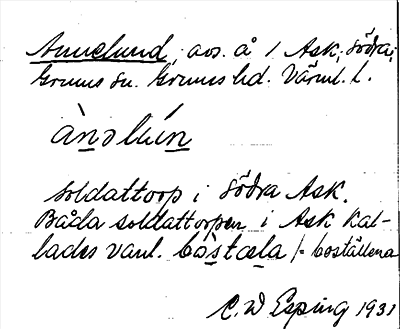 Annelund, avs. å 1 Ask, södra;
Grums sn. Grums hd. Värml. l.
ànəlún
soldattorp i södra Ask.
Båda soldattorpen i Ask kal-
lades vanl. bòstæla /= boställena
C. W Esping 1931